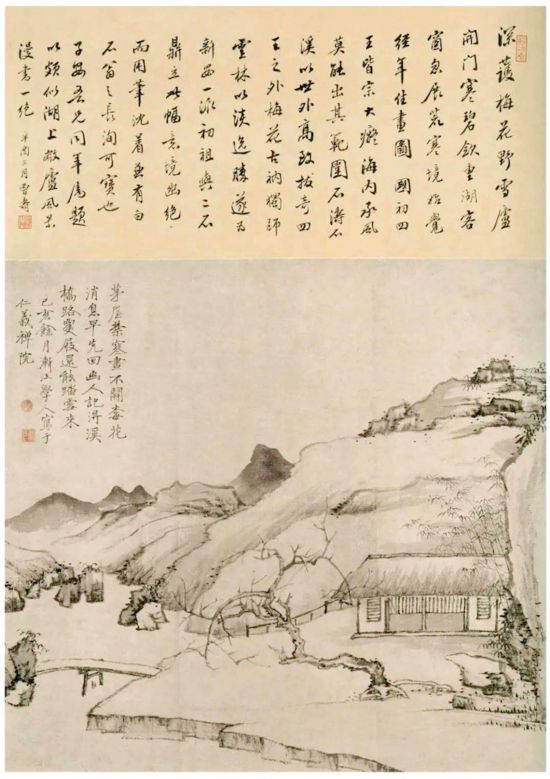 深護梅花野雪廬
開門寒碧飲重湖客
窗忽展荒寒境始覺
經年住畫圖 國初四
王皆宗大癡海內承風
莫能出其範圍石濤石
溪以世外高致拔奇四
王之外梅花古衲獨師
雲林以淡逸勝遂為
新安一派初祖與二石
鼎立此幅意境幽絕
而用筆沈着兼有白
石翁之長洵可寶也
子安吾兄同年屬題
以頗似湖上敝廬風景
漫書一絕 辛酉三月曾壽
茅屋禁寒晝不開梅花
消息早先回幽人記得溪
橋路雙屐還能踏雪來
己亥餘月漸江學人寫于
仁義禪院